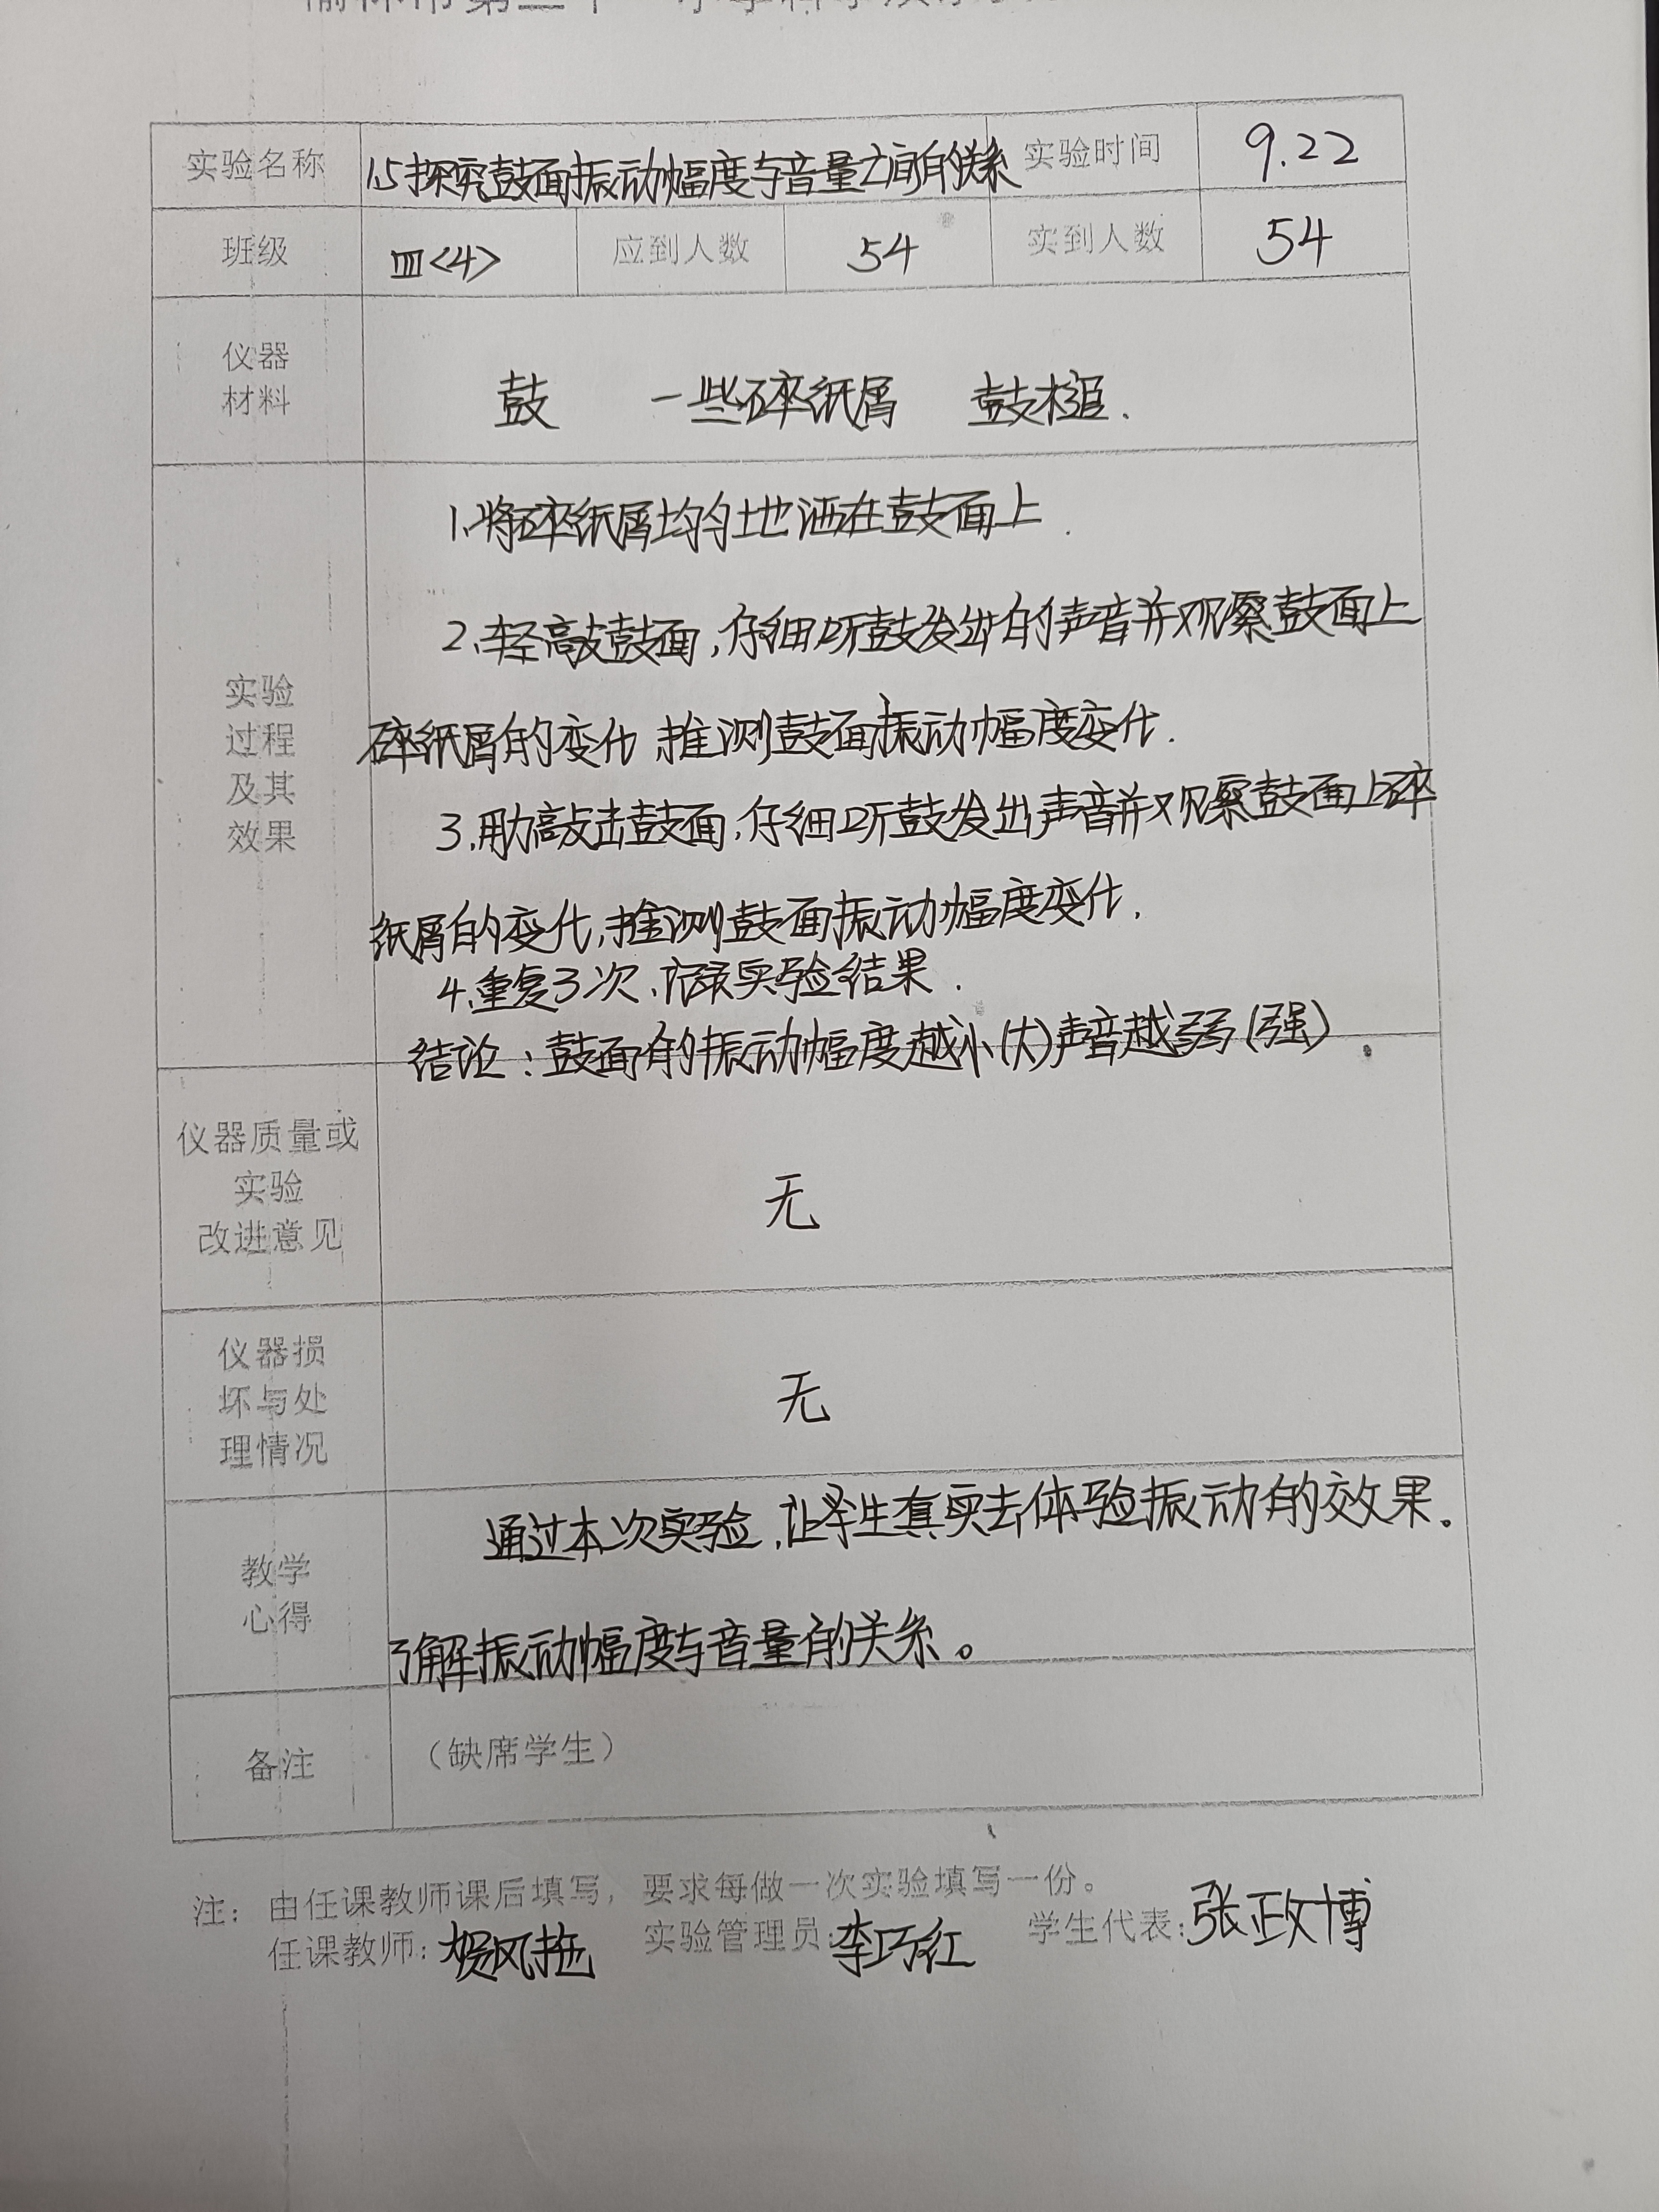 实验名称 1.5探究鼓面振动幅度与音量之间的关系 实验时间 9.22
班级 四<4> 应到人数 54 实到人数 54
仪器
材料
鼓 一些碎纸屑 鼓槌.
实验
过程
及其
效果
1.将碎纸屑均匀地洒在鼓面上.
2.轻敲鼓面,仔细听鼓发出的声音并观察鼓面上
碎纸屑的变化,推测鼓面振动幅度变化.
3.用力敲击鼓面,仔细听鼓发出声音并观察鼓面上碎
纸屑的变化,推测鼓面振动幅度变化.
4.重复3次,记录实验结果.
结论:鼓面的振动幅度越小(大)声音越弱(强)
仪器质量或
实验
改进意见
无
仪器损
坏与处
理情况
无
教学
心得
通过本次实验,让学生真实去体验振动的效果。
了解振动幅度与音量的关系。
备注 (缺席学生)
注:由任课教师课后填写,要求每做一次实验填写一份。
任课教师: 实验管理员:李巧红 学生代表:张政博